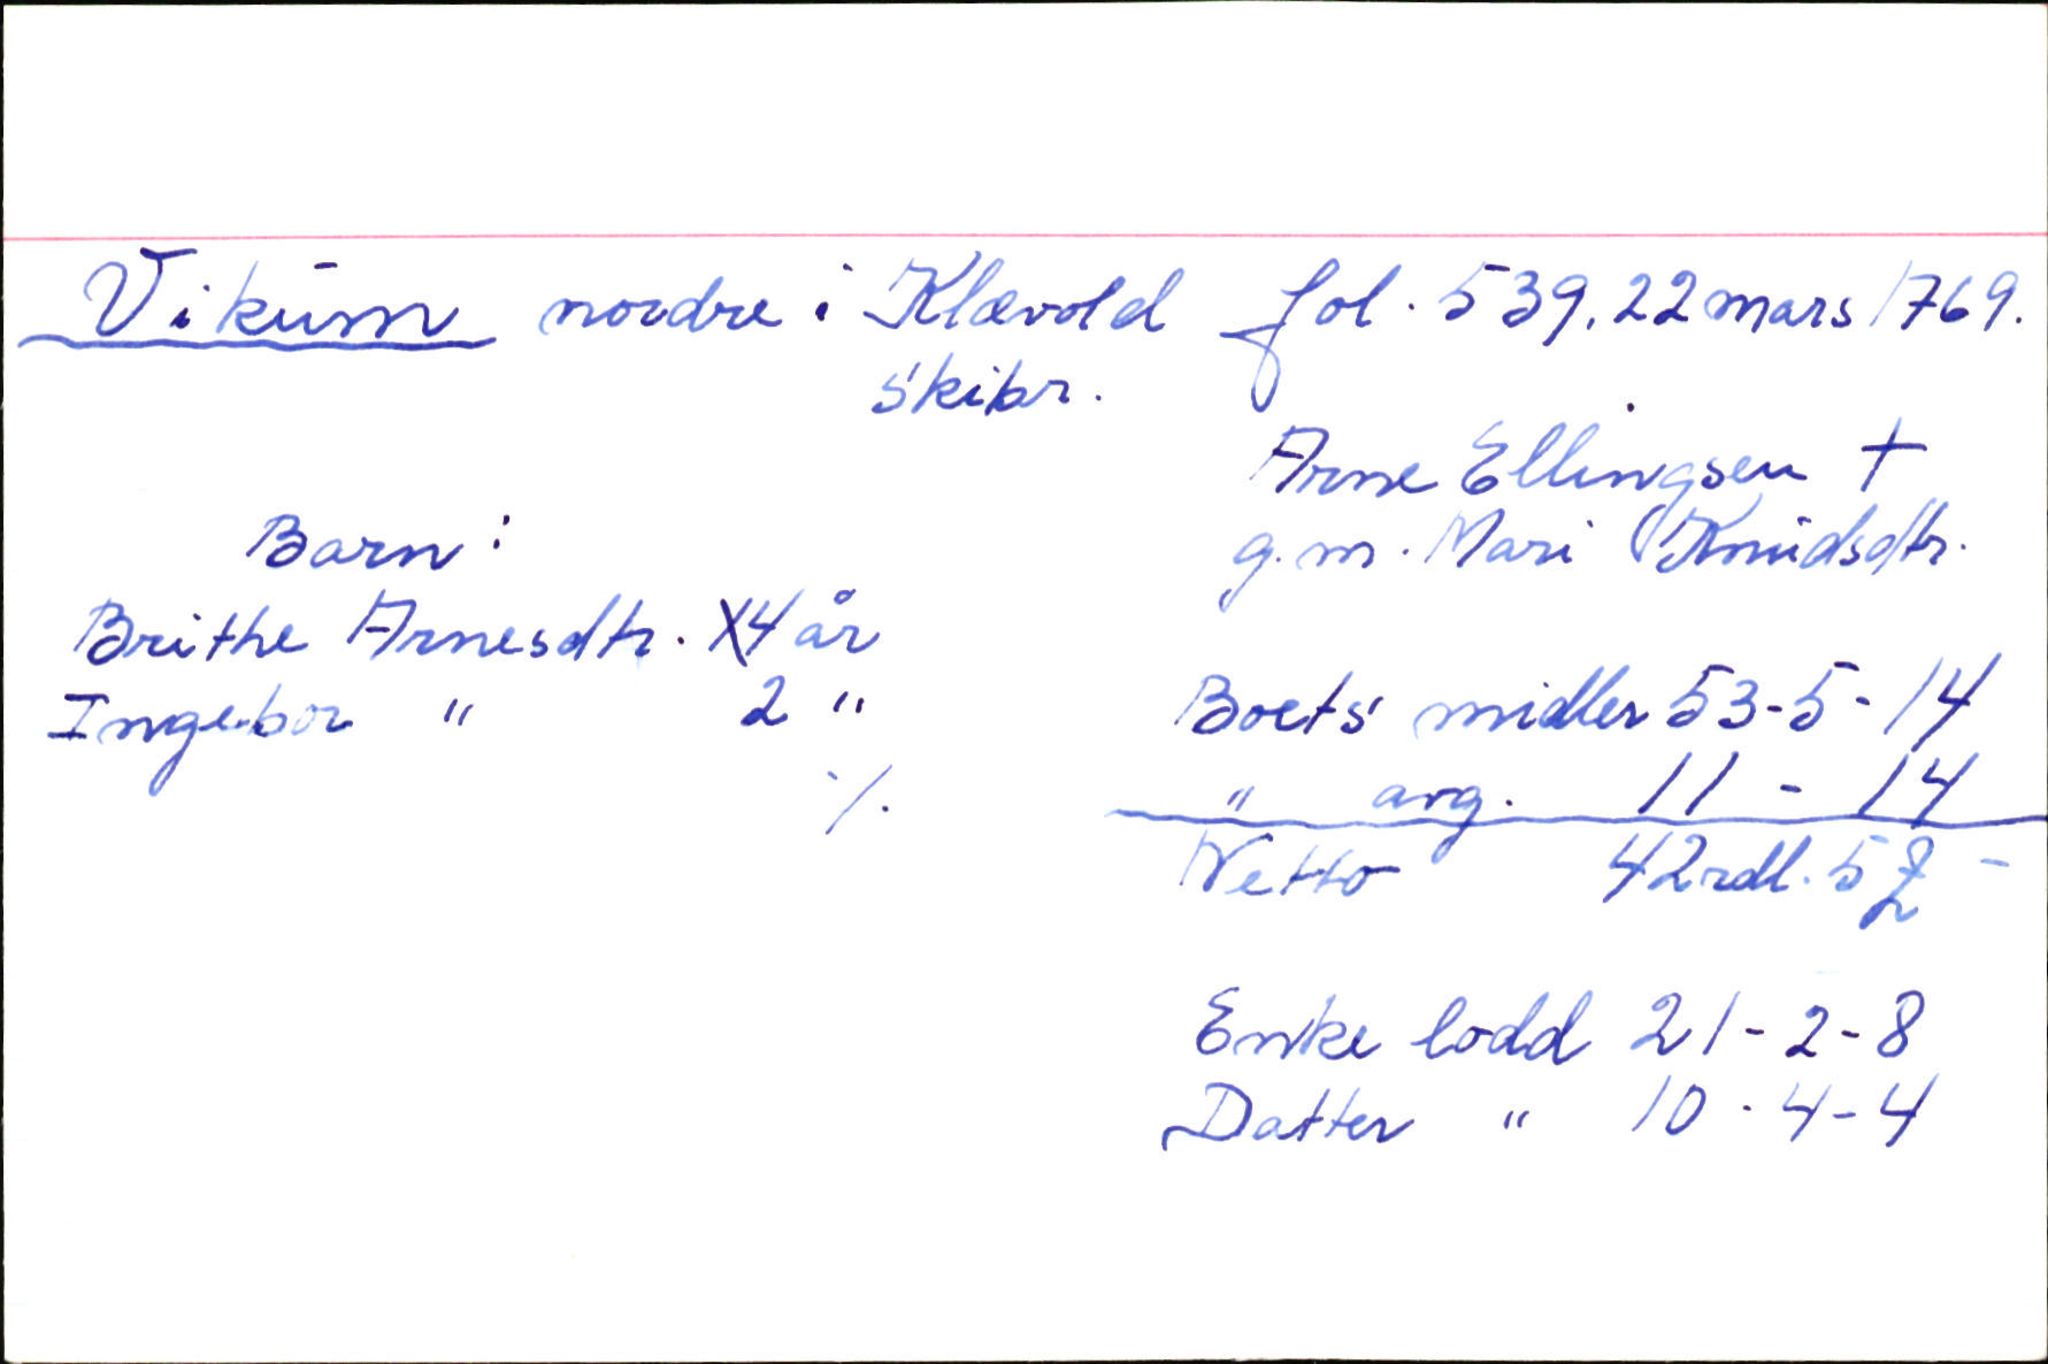 Vikum nordre i Klævold fol. 539, 22 mars 1769.
Skibr.
Arne Ellingsen †
g.m. Mari Knudsdtr.
Barn:
Brithe Arnesdtr. 4 år
Ingebor " 2 "
./.
Boets midler 53-5-14
" avg. 11 - 14
Netto 42 rdl. 5 -
Enke lodd 21-2-8
Datter " 10-4-4